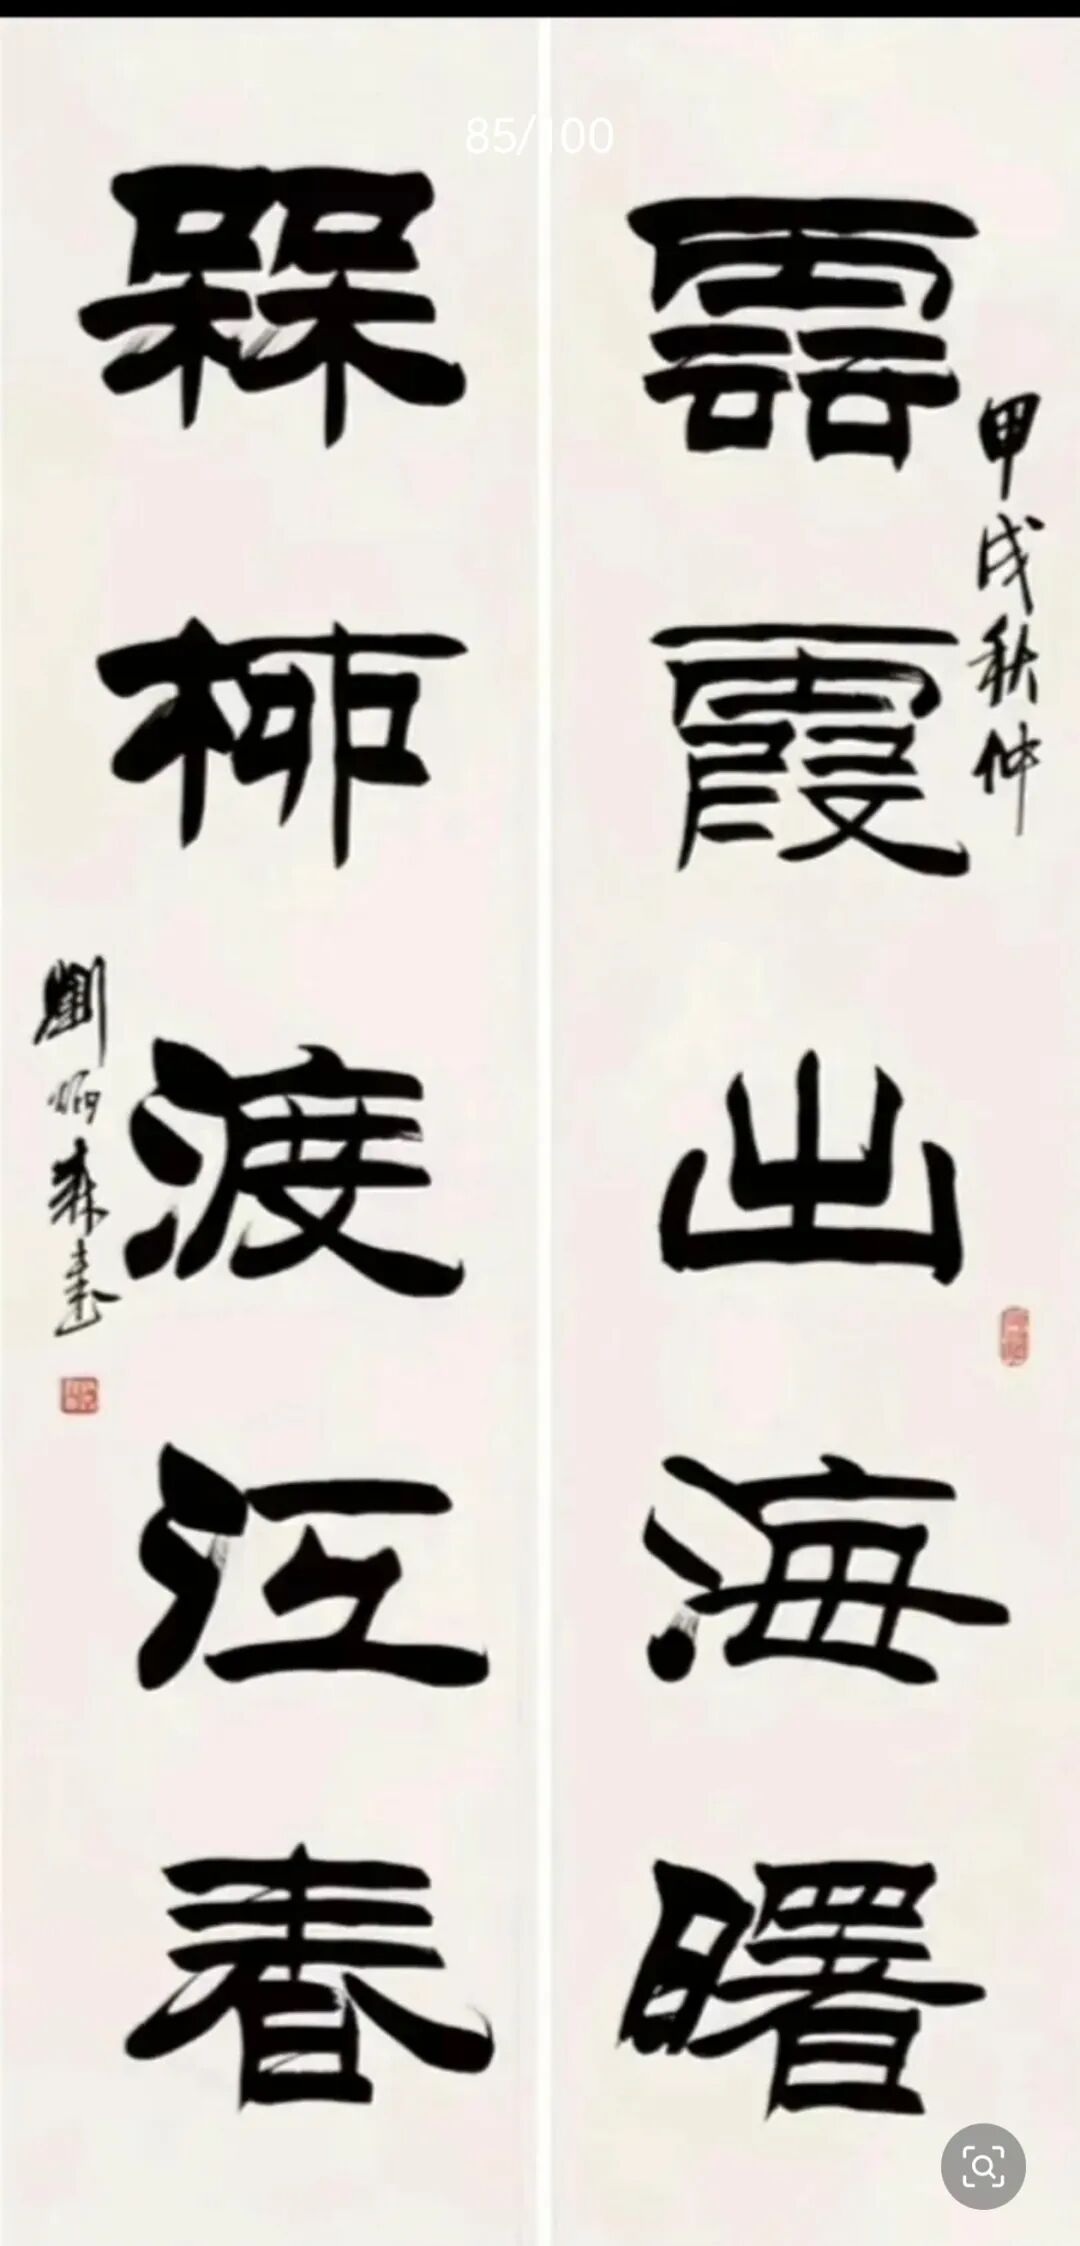 85/100
雲霞出海曙
甲戌秋仲
槑柳渡江春
劉炳森書